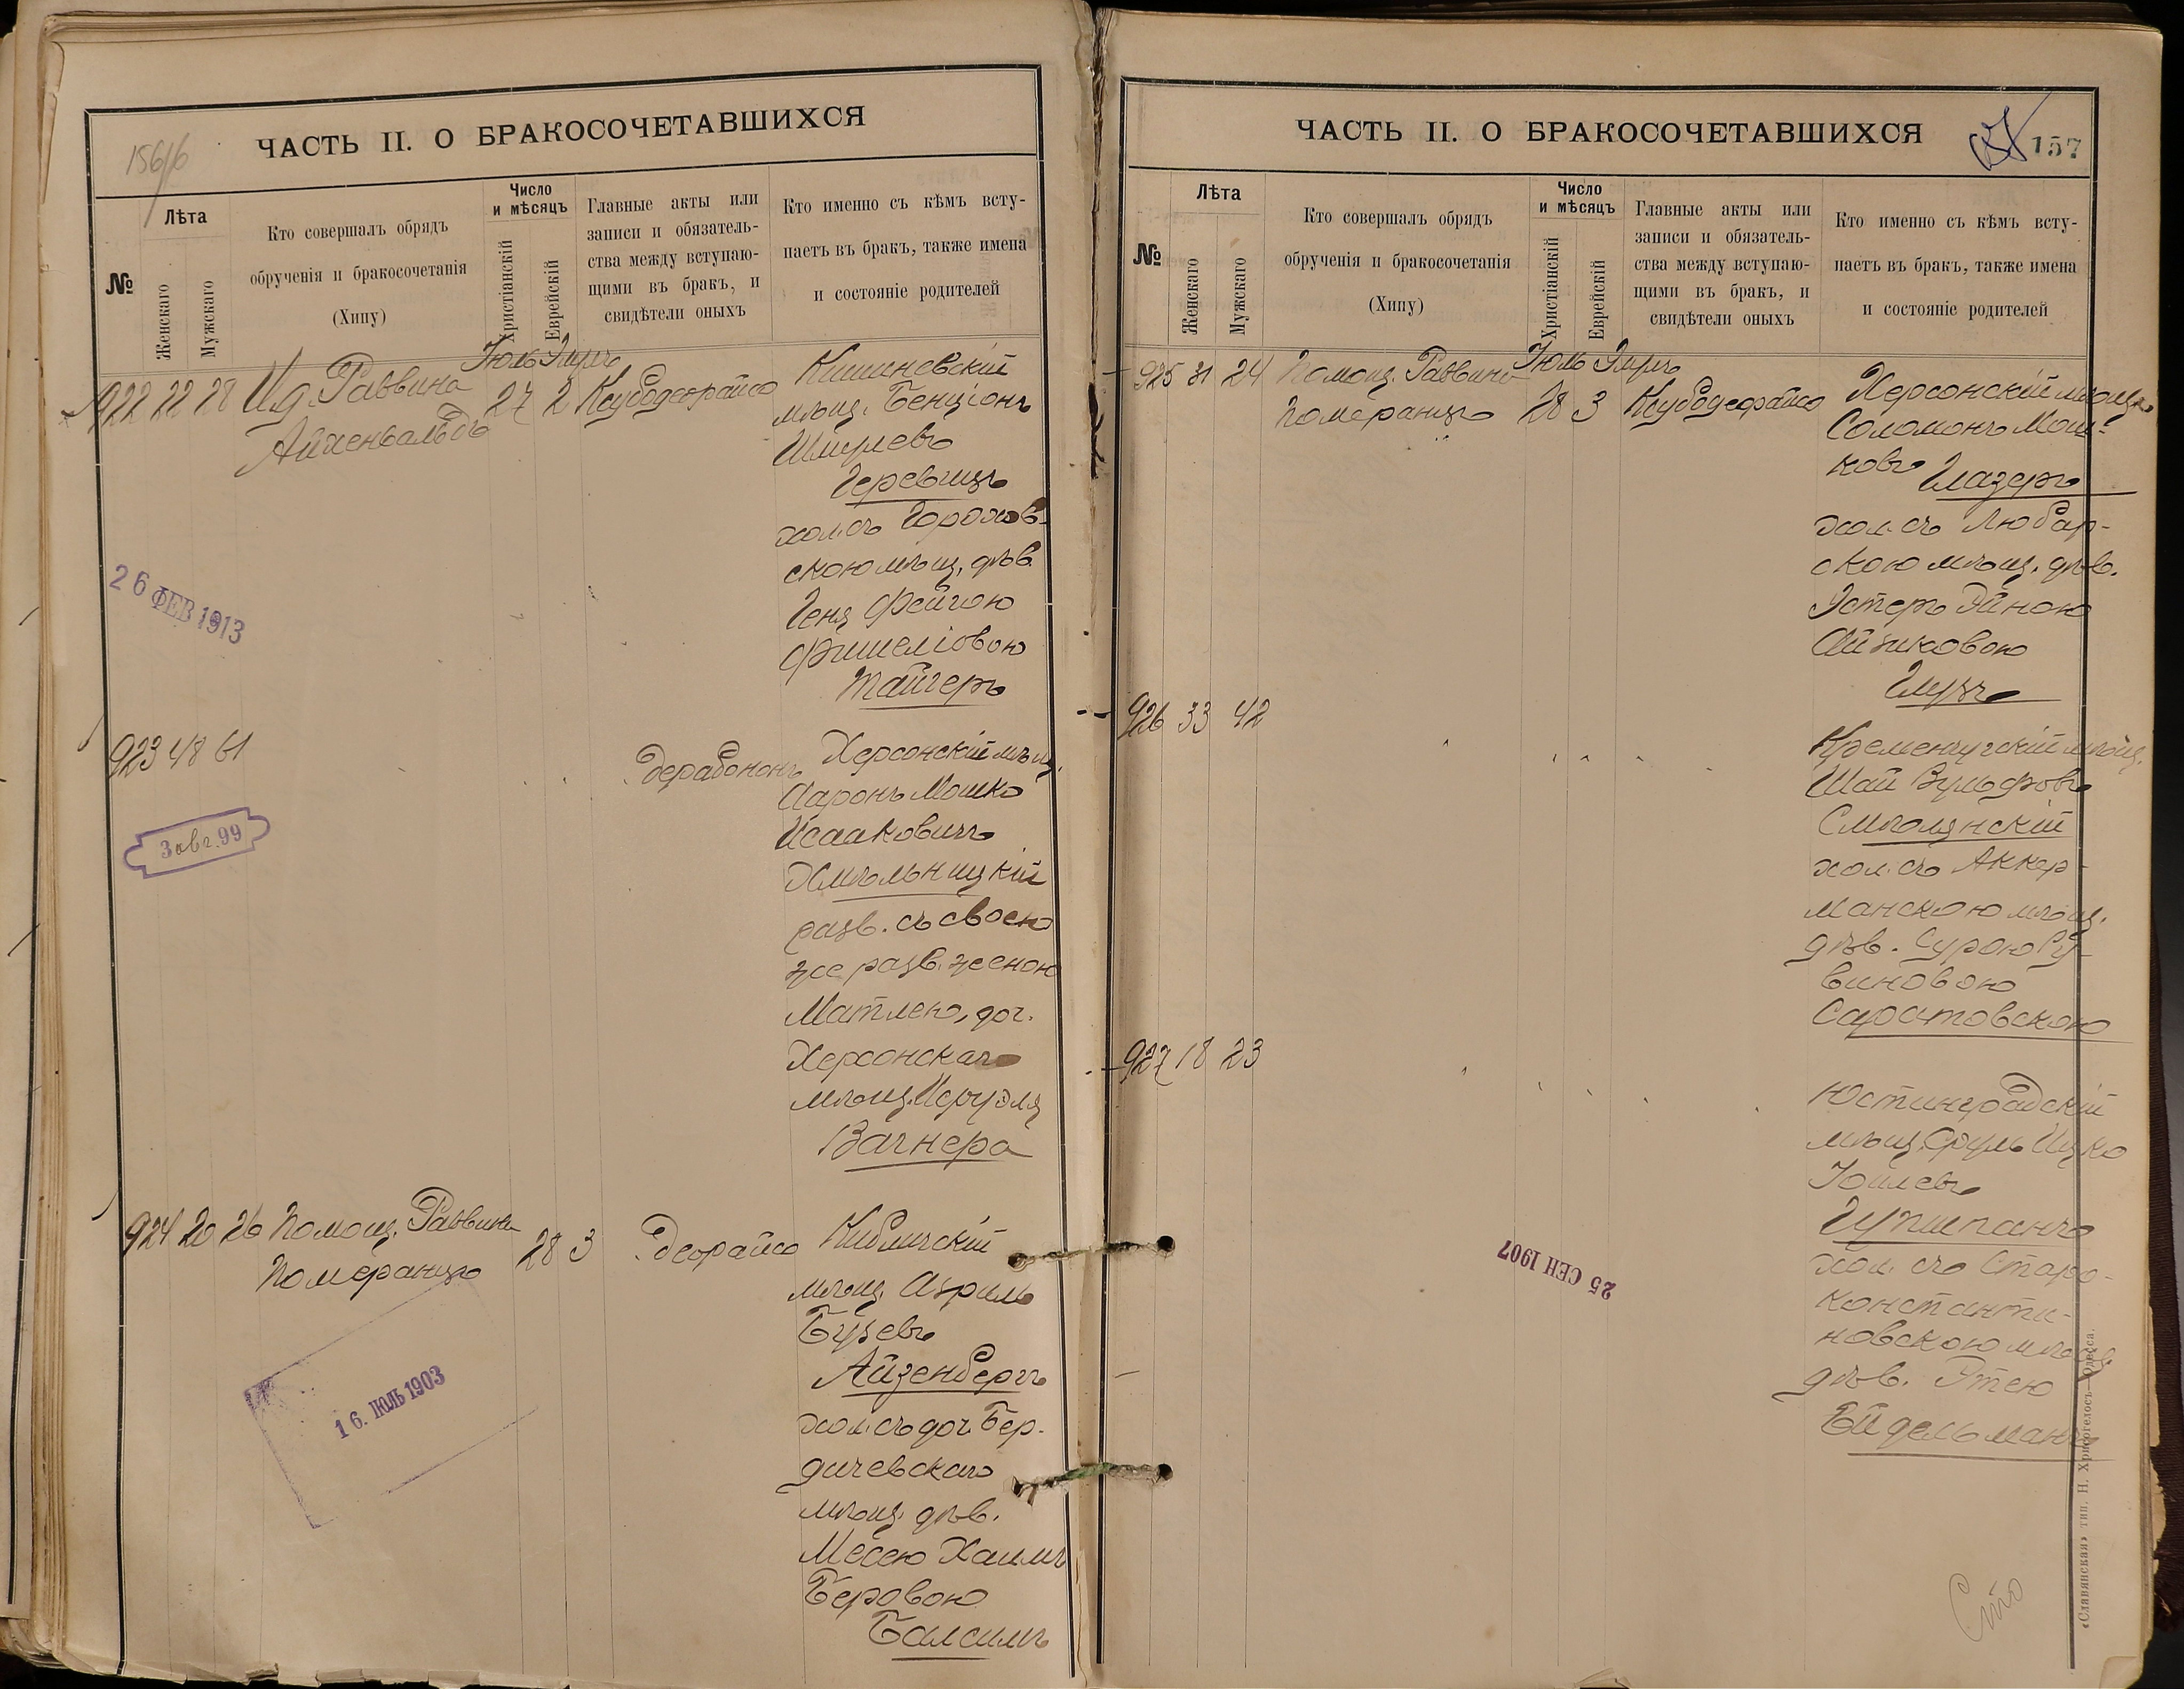 156/б
ЧАСТЬ II. О БРАКОСОЧЕТАВШИХСЯ
№
Лѣта
Женскаго
Мужскаго
Кто совершалъ обрядъ
обрученія и бракосочетанія
(Хипу)
Число
и мѣсяцъ
Христіанскій
Еврейскій
Главные акты или
записи и обязатель-
ства между вступаю-
щими въ бракъ, и
свидѣтели оныхъ
Кто именно съ кѣмъ всту-
паетъ въ бракъ, также имена
и состояніе родителей
Іюль Элулъ
922 22 28 И.д. Раввина 27 2 Ксубодеорайсо
Айхенвальдъ
Кишиневскій
мѣщ. Бенціонъ
Шмулевъ
Геревицъ
хол. съ Горохов-
скою мѣщ. дѣв.
Геня Фейгою
Фишеліовою
Тайгеръ
26 ФЕВ 1913
923 48 61
дерабононъ
Херсонскій мѣщ.
Ааронъ Мошко
Исааковичъ
Хмѣльницкій
разв. съ своею
же разв. женою
Матлею, доч.
Херсонскаго
мѣщ. Исруэля
Вагнера
3 авг. 99
924 20 26 Помощ. Раввина 28 3 деорайсо
Померанцъ
Кибличскій
мѣщ. Азриль
Бузевъ
Айзенбергъ
хол. съ доч. Бер-
дичевскаго
мѣщ. дѣв.
Месею Хаимъ
Беровою
Балсамъ
16. ІЮЛЬ 1903
ЧАСТЬ II. О БРАКОСОЧЕТАВШИХСЯ
157
№
Лѣта
Женскаго
Мужскаго
Кто совершалъ обрядъ
обрученія и бракосочетанія
(Хипу)
Число
и мѣсяцъ
Христіанскій
Еврейскій
Главные акты или
записи и обязатель-
ства между вступаю-
щими въ бракъ, и
свидѣтели оныхъ
Кто именно съ кѣмъ всту-
паетъ въ бракъ, также имена
и состояніе родителей
Іюль Элулъ
925 21 24 Помощ. Раввина 28 3 Ксубодеорайсо
Померанцъ
Херсонскій мѣщ.
Соломонъ Мош-
ковъ Глазеръ
хол. съ Любар-
скою мѣщ. дѣв.
Эстеръ Эйною
Айзиковою
Глузъ
926 33 42
Кременчугскій мѣщ.
Шай Вульфовъ
Смѣлянскій
хол. съ Аккер-
манскою мѣщ.
дѣв. Сурою Ру-
виновою
Саратовскою
927 18 23
Юстинградскій
мѣщ. Сруль Ицко
Іойлевъ
Гупшпанъ
хол. съ Старо-
константи-
новскою мѣщ.
дѣв. Этею
Ейдельманъ
25 СЕН 1907
«Славянская» тип. Н. Хрисогелосъ—Одесса.
Сто